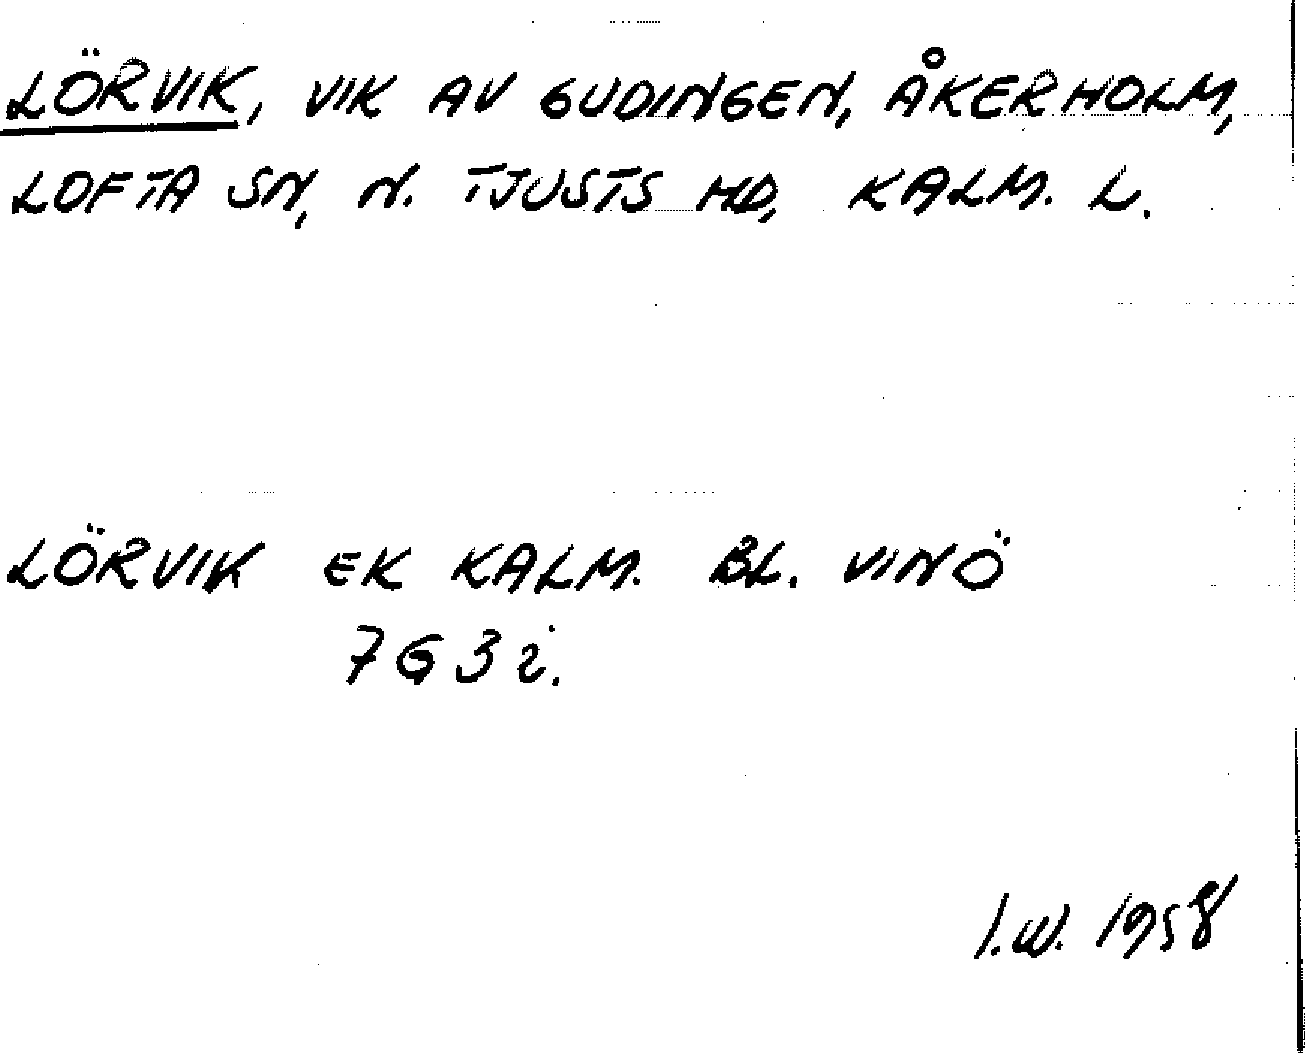 LÖRVIK, VIK AV GUDINGEN, ÅKERHOLM,
LOFTA SN, N. TJUSTS HD, KALM. L.
LÖRVIK EK KALM. BL. VINÖ
7G3i.
I.W. 1958